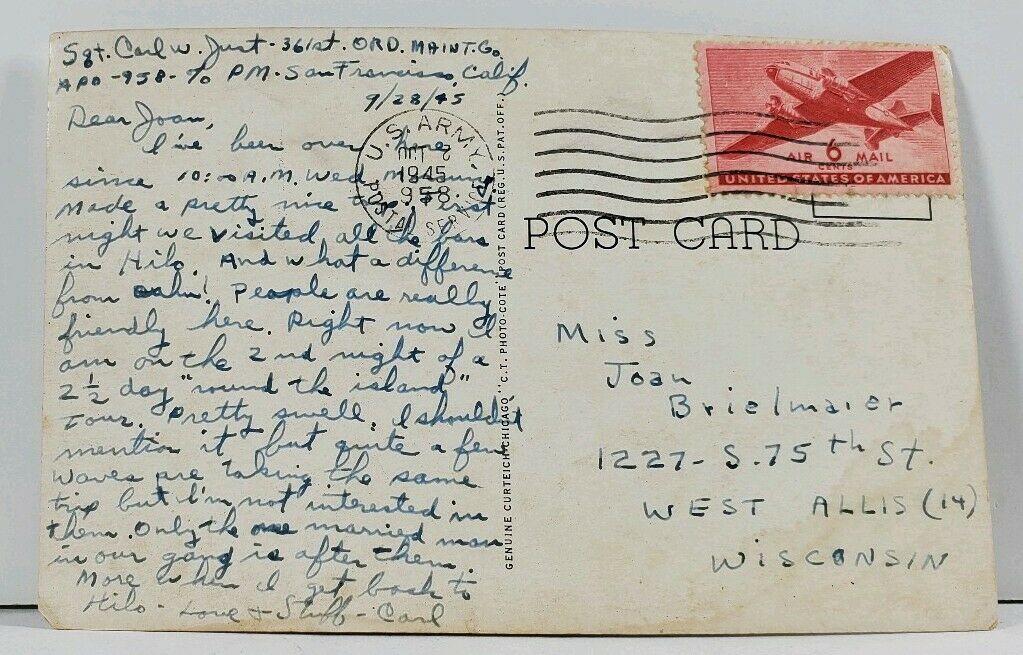 Sgt. Carl W. Just - 361st. ORD. MAINT. Co.
APO - 958 - % PM. San Francisco, Calif.
9/28/45
Dear Joan,
I've been over here
since 10:00 A.M. Wed. Morning
Made a pretty nice trip. First
night we visited all the bars
in Hilo. And what a difference
from Oahu! People are really
friendly here. Right now I
am on the 2nd night of a
2½ day "round the island"
Tour. Pretty swell. I shouldn't
mention it, but quite a few
Waves are taking the same
trip but I'm not interested in
them. Only the one married man
in our gang is after them.
More when I get back to
Hilo - Love & Stuff - Carl
U.S. ARMY
OCT 2
1945
958
POSTAL SERVICE
GENUINE CURTEICH-CHICAGO "C.T. PHOTO-COTE" POST CARD (REG. U.S. PAT. OFF.)
AIR 6 MAIL
CENTS
UNITED STATES OF AMERICA
POST CARD
Miss
Joan
Brielmaier
1227 - S. 75th St.
WEST ALLIS (14)
WISCONSIN